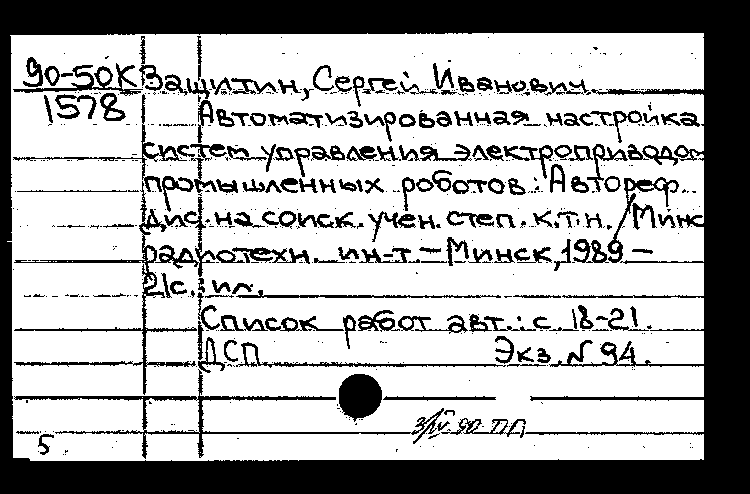 90-50К Защитин, Сергей Иванович.
1578 Автоматизированная настройка
систем управления электроприводом
промышленных роботов: Автореф.
дис. на соиск. учен. степ. к.т.н. / Минс
радиотехн. ин-т. - Минск, 1989 -
21с.: ил.
Список работ авт.: с. 18-21.
ДСП. Экз. N 94.
3/IV-90 ПП
5